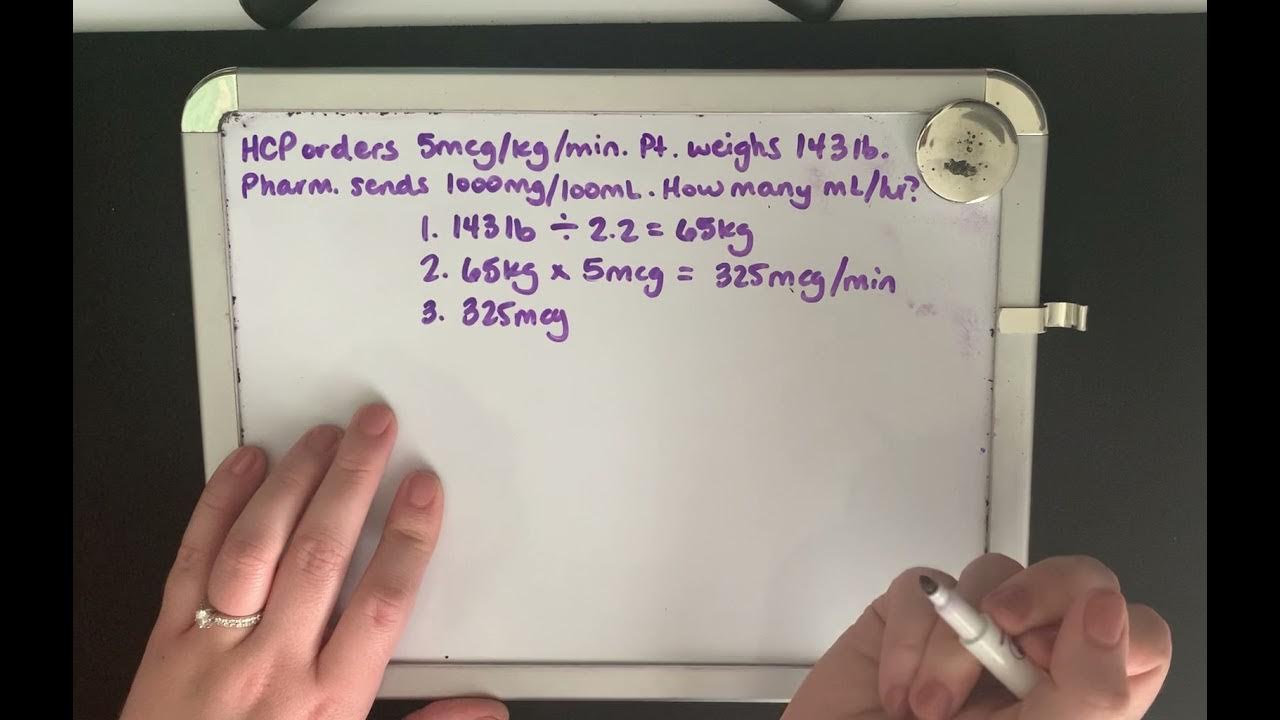 HCP orders 5mcg/kg/min. Pt. weighs 143 lb.
Pharm. sends 1000mg/100mL. How many mL/hr?
1. 143 lb ÷ 2.2 = 65kg
2. 65kg x 5mcg = 325mcg/min
3. 325mcg